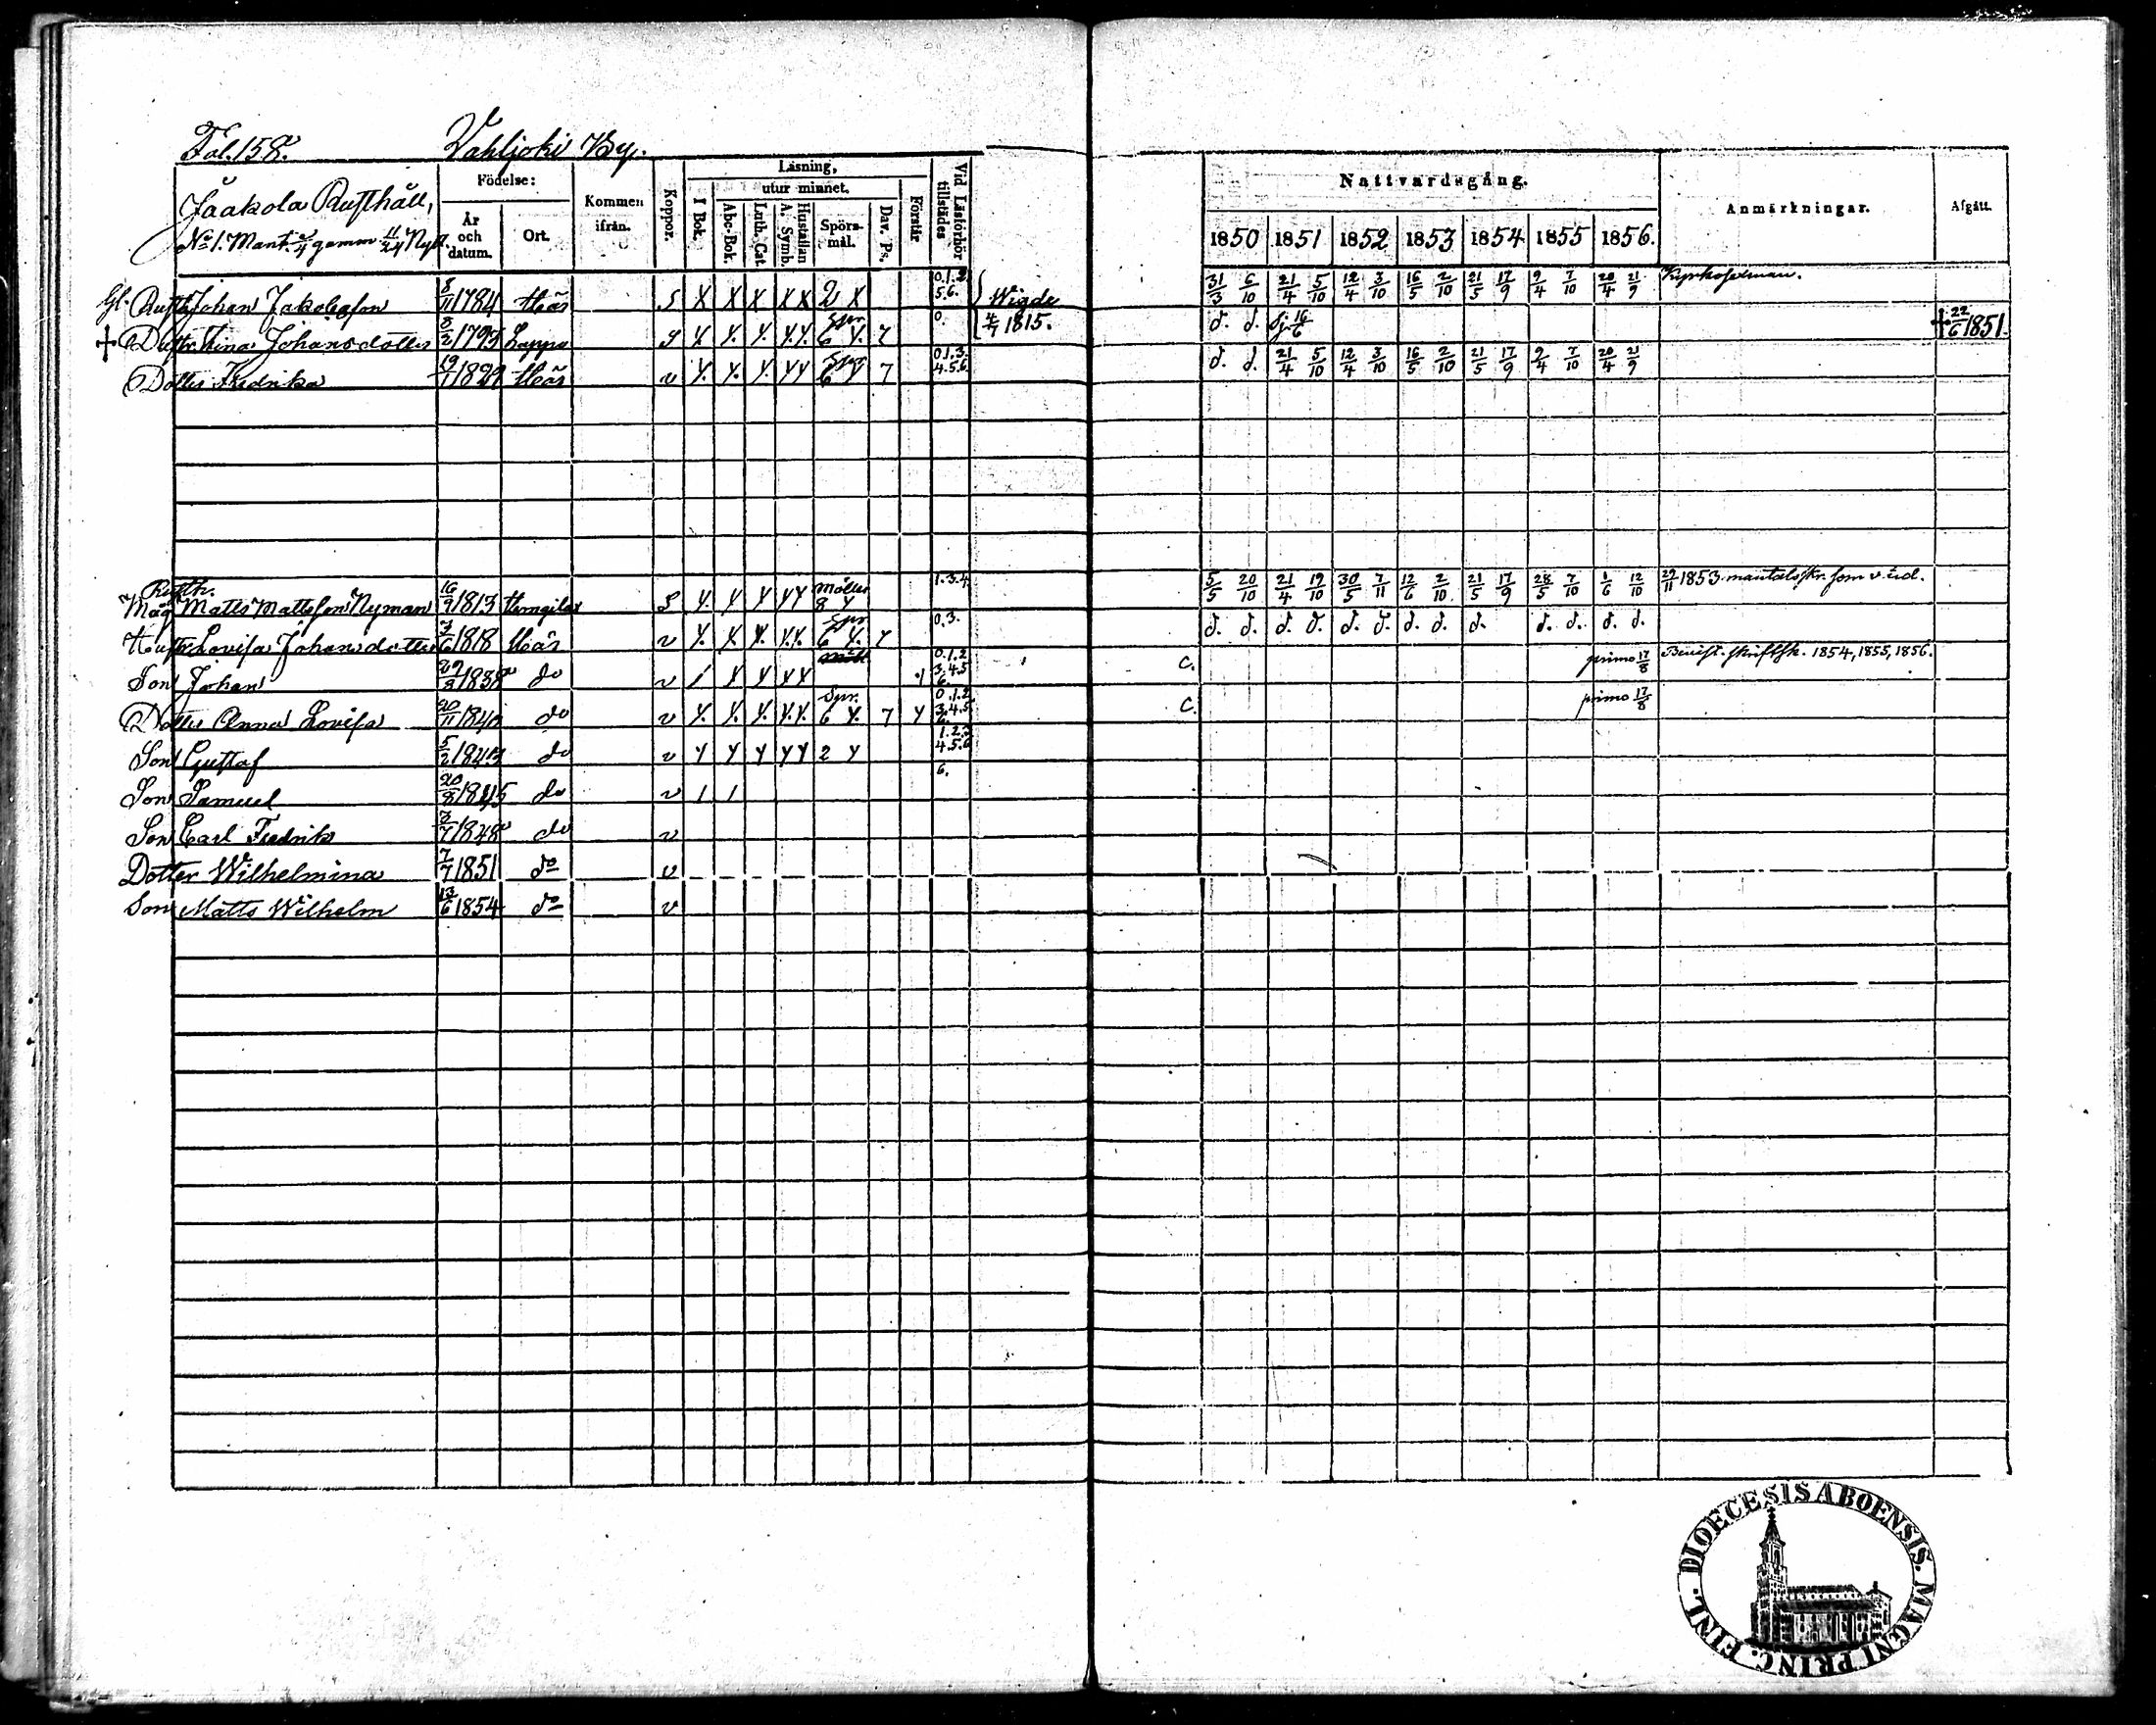 Fol. 158. Vahljoki By.
Jaakola Rusthåll,
No 1. Mant. gamm 11/24 Nytt.
Födelse:
År och datum.
Ort.
Kommen ifrån.
Koppor.
Läsning,
utur minnet.
I Bok.
Abc-Bok.
Luth. Cat.
Hustaflan A. Symb.
Spörs-mål.
Dav. Ps.
Förstår
Vid Läsförhör tillstädes
Nattvardsgång.
1850 1851 1852 1853 1854 1855 1856.
Anmärkningar.
Afgått.
Gl. Rusth. Johan Jakobsson 8/11 1784 S X X X X X 2 X 0.1.2 5.6. Wigde 31/3 6/10 21/4 5/10 12/4 3/10 16/5 2/10 21/5 17/9 9/4 7/10 20/4 21/9
† Hustr. Johansdotter 8/2 1793 Lappo Spr 6 Y. 7 0. 4/7 1815. d. d. 16/6 † 22/6 1851.
Dotter Fredrika 19/7 1829 v Y. Y. Y. Y Y Spr 6 Y 7 0.1.3. 4.5.6. d. d. 21/4 5/10 12/4 3/10 16/5 2/10 21/5 17/9 9/4 7/10 20/4 21/9
Rusth.
Måg Matts Mattsson Nyman 16/9 1813 S Y. Y Y Y Y 8 Y 1.3.4. 5/5 20/10 21/4 19/10 30/5 7/11 12/6 2/10 21/5 17/9 28/5 7/10 1/6 12/10 29/11 1853 mantalsskr. som
Hustr. Lovisa Johansdotter 3/6 1818 v Y. X Y. Y.Y. Spr 6 Y. 7 0.3. d. d. d. d. d. d. d. d. d. d. d. d. d.
Son Johan 29/8 1838 do v 1 Y Y Y Y 0.1.2 3.4.5 6. C. primo 17/8 Bevist. skriftsk. 1854, 1855, 1856.
Dotter Anna Lovisa 20/11 1840 do v Y. Y. Y. Y.Y. Spr. 6 Y. 7 Y 0.1.2 3.4.5 6. C. primo 17/8
Son Gustaf 5/2 1843 do v Y Y Y Y Y 2 Y 1.2.3 4.5.6
Son Samuel 20/8 1845 do v 1 1 6.
Son Carl Fredrik 3/7 1848 do v
Dotter Wilhelmina 7/7 1851 do v
Son Matts Wilhelm 13/6 1854 do v
DIOECESIS ABOENSIS. MAGNI PRINC. FINL.